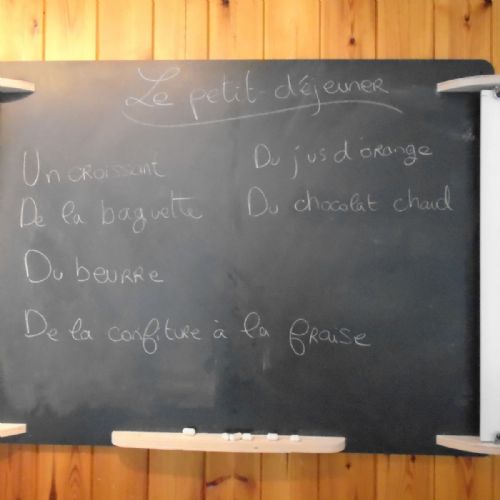 Le petit-déjeuner
Un croissant
De la baguette
Du beurre
De la confiture à la fraise
Du jus d'orange
Du chocolat chaud